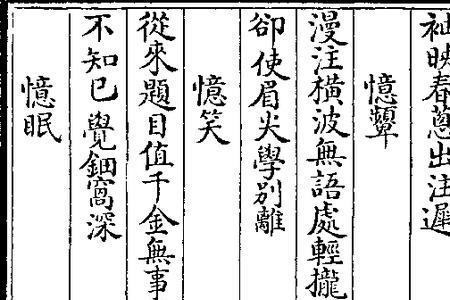 袖映春蔥出注遲
憶顰
漫注橫波無語處輕攏
卻使眉尖學別離
憶笑
從來題目值千金無事
不知已覺鈿窩深
憶眠